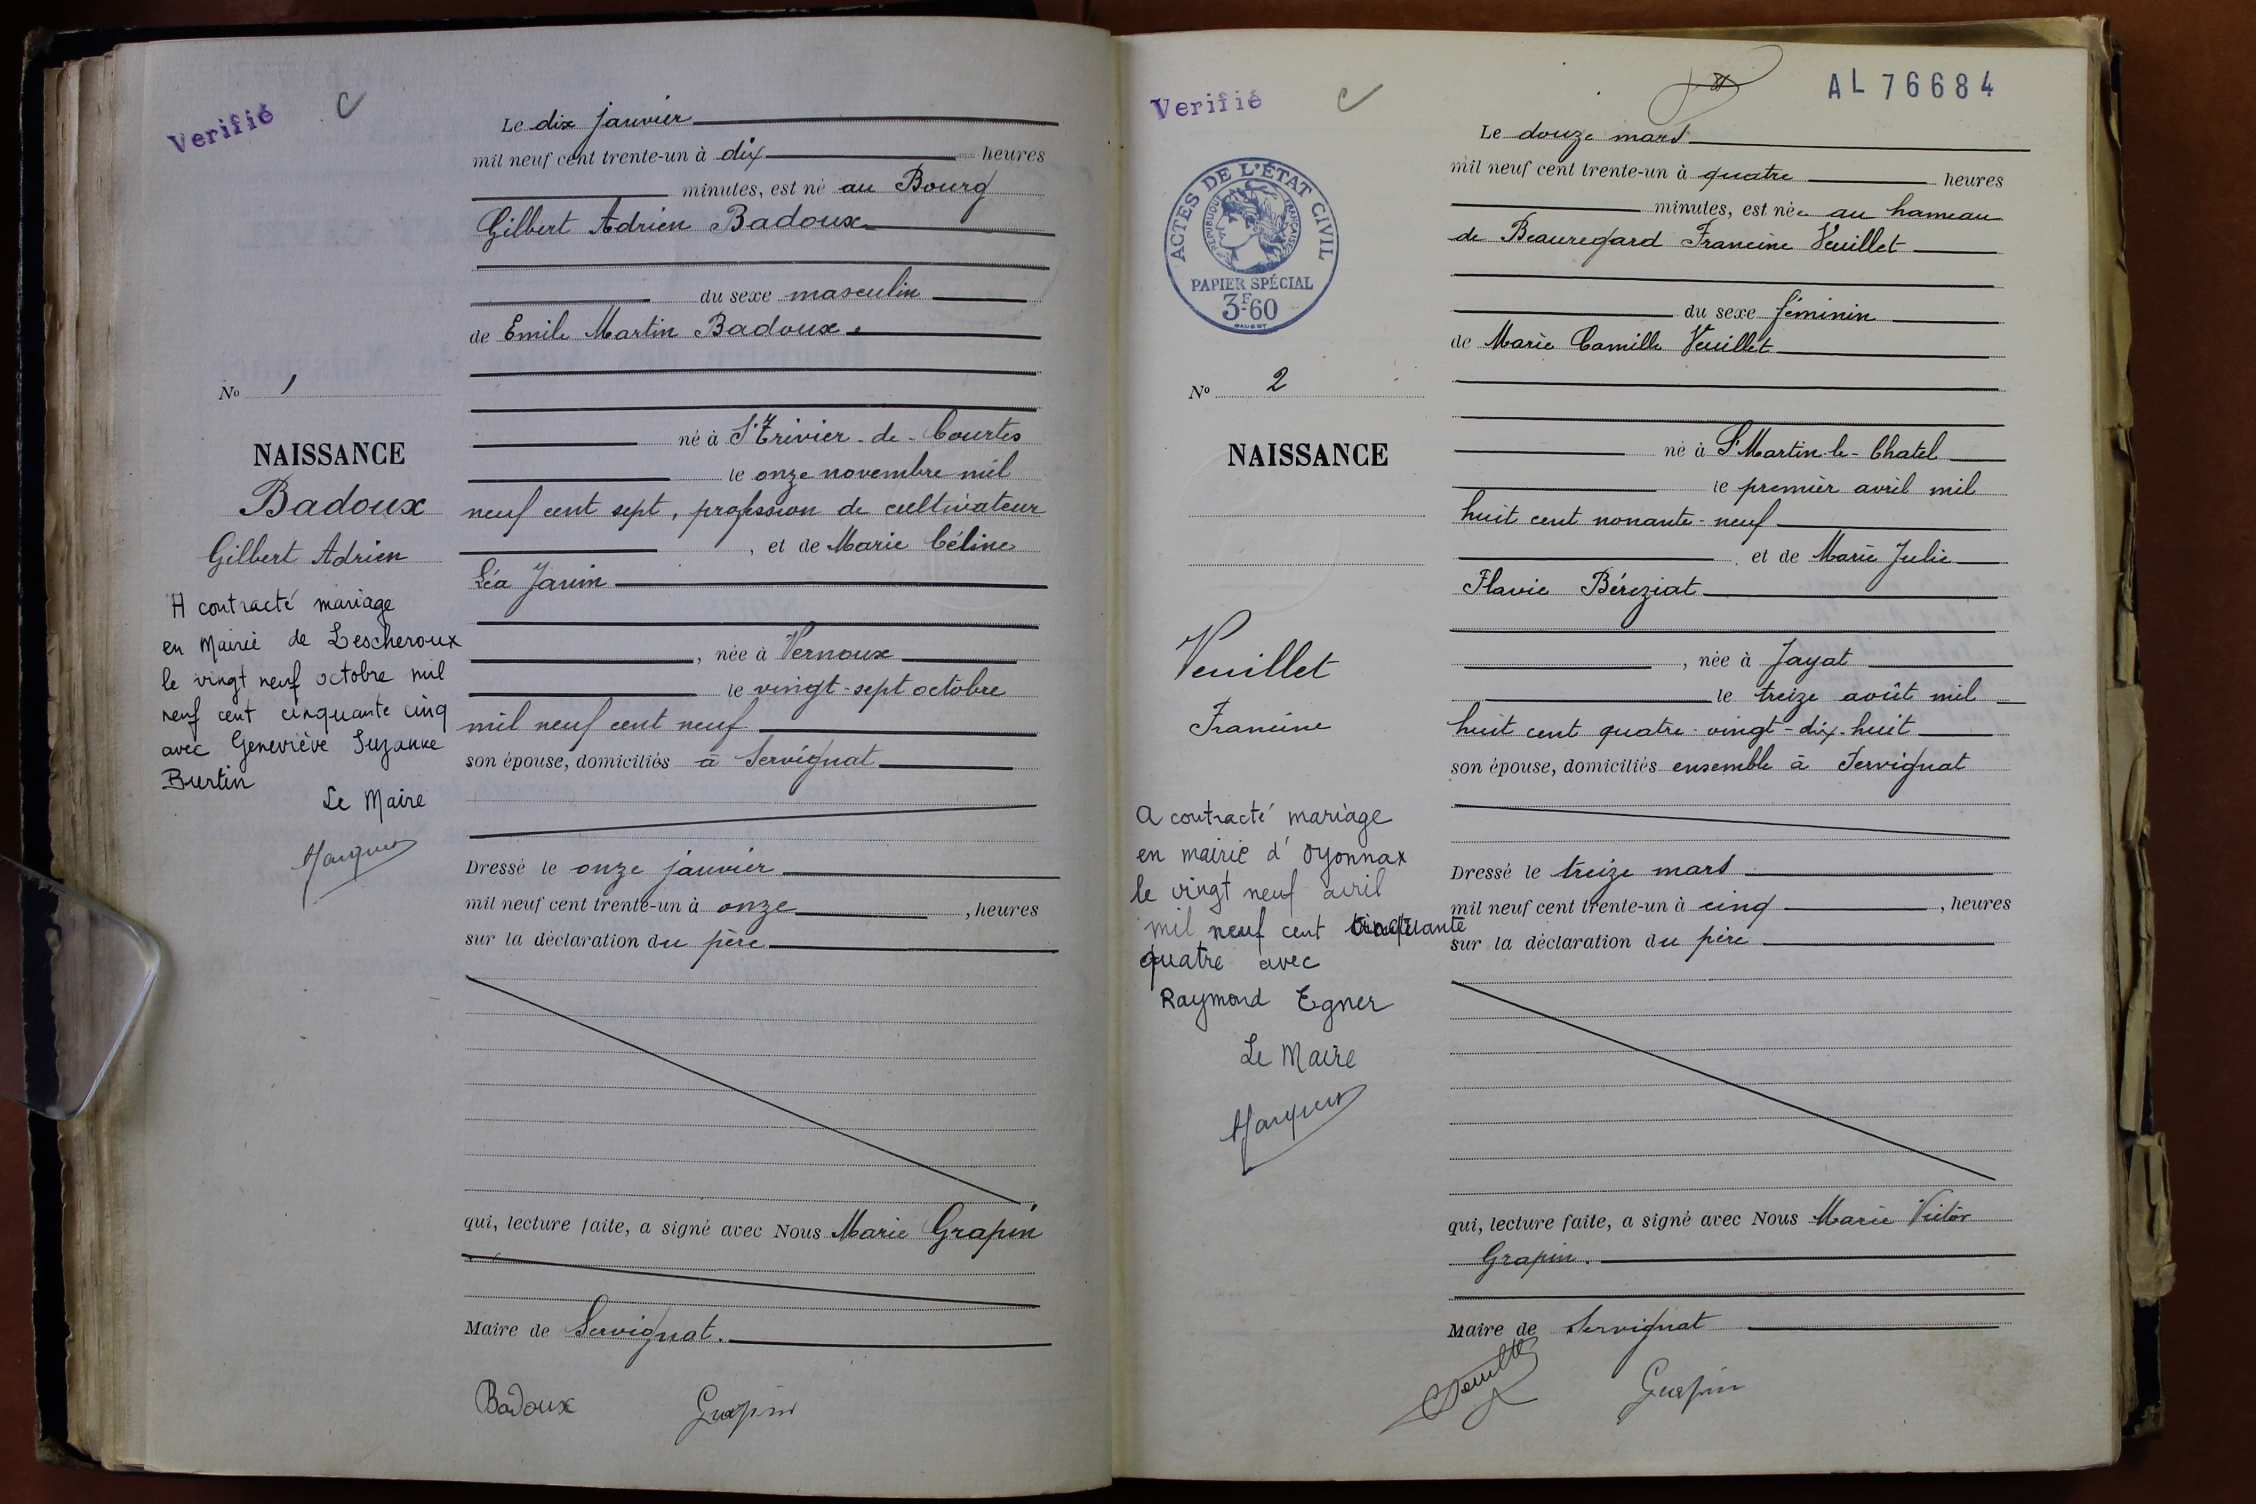 Verifié
C
Le dix janvier
mil neuf cent trente-un à dix heures
minutes, est né au Bourg
Gilbert Adrien Badoux
du sexe masculin
de Emile Martin Badoux,
né à St Trivier-de-Courtes
le onze novembre mil
neuf cent sept, profession de cultivateur
, et de Marie Céline
Léa Janin
, née à Vernoux
le vingt-sept octobre
mil neuf cent neuf
son épouse, domiciliés à Servignat
Dressé le onze janvier
mil neuf cent trente-un à onze , heures
sur la déclaration du père
qui, lecture faite, a signé avec Nous Marie Grapin
Maire de Servignat.
Badoux Grapin
No 1
NAISSANCE
Badoux
Gilbert Adrien
A contracté mariage
en Mairie de Lescheroux
le vingt neuf octobre mil
neuf cent cinquante cinq
avec Geneviève Suzanne
Burtin
Le Maire
Verifié
C
AL 76684
ACTES DE L'ÉTAT CIVIL
RÉPUBLIQUE FRANÇAISE
PAPIER SPÉCIAL
3F60
No 2
NAISSANCE
Veuillet
Francine
A contracté mariage
en mairie d'Oyonnax
le vingt neuf avril
mil neuf cent cinquante
quatre avec
Raymond Egner
Le Maire
Le douze mars
mil neuf cent trente-un à quatre heures
minutes, est née au hameau
de Beauregard Francine Veuillet
du sexe féminin
de Marie Camille Veuillet
né à St Martin-le-Chatel
le premier avril mil
huit cent nonante-neuf
et de Marie Julie
Flavie Béréziat
, née à Jayat
le treize août mil
huit cent quatre-vingt-dix-huit
son épouse, domiciliés ensemble à Servignat
Dressé le treize mars
mil neuf cent trente-un à cinq , heures
sur la déclaration du père
qui, lecture faite, a signé avec Nous Marie Victor
Grapin.
Maire de Servignat
Veuillet Grapin